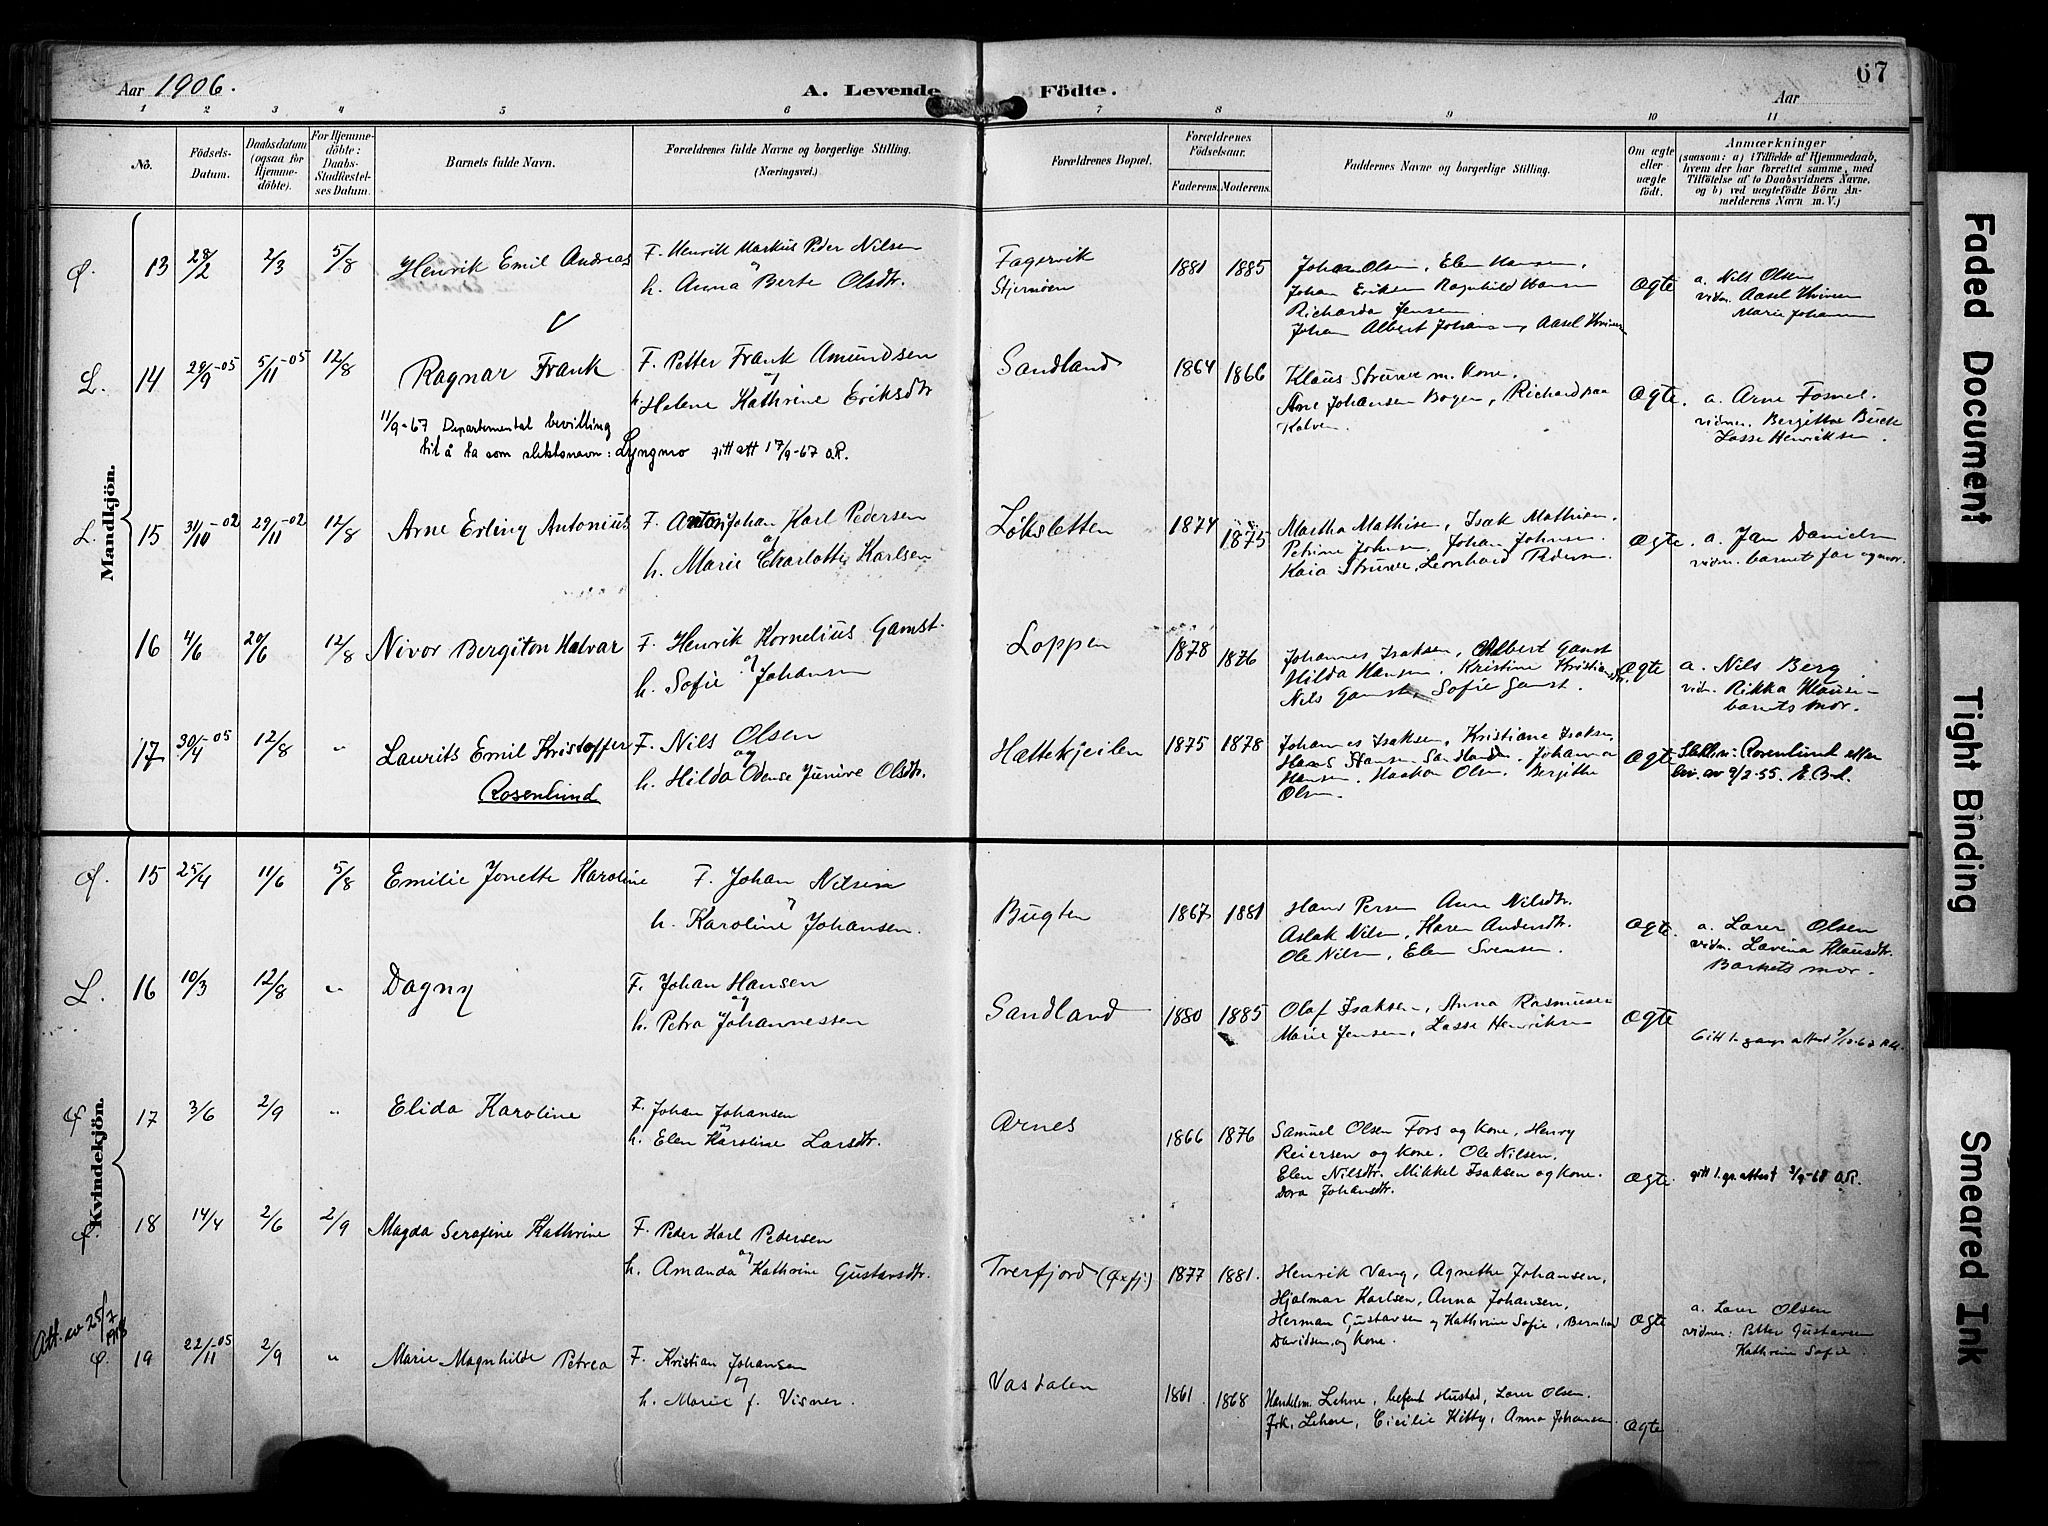 Aar 1906.
A. Levende Födte.
67
Aar
1 2 3 4 5 6 7 8 9 10 11
No.
Födsels-Datum.
Daabsdatum (ogsaa for Hjemme-döbte).
For Hjemme-döbte: Daabs-Stadfæstel-ses Datum.
Barnets fulde Navn.
Forældrenes fulde Navne og borgerlige Stilling. (Næringsvei.)
Forældrenes Bopæl.
Forældrenes Födselsaar.
Faderens. Moderens.
Faddernes Navne og borgerlige Stilling.
Om ægte eller uægte født.
Anmærkninger
(saasom: a) i Tilfælde af Hjemmedaab, hvem der har forrettet samme, med Tilföielse af to Daabsvidners Navne, og b) ved uægtefödte Börn An-melderens Navn m. V.)
Mandkjön.
Ø. 13 28/2 2/3 5/8 Henrik Emil Andreas
F. Henrik Markus Peder Nilsen
og
h. Anna Berte Olsdtr.
Fagervik
Stjernöen
1881 1885
Johan Olsen, Elen Hansen,
Johan Eriksen Ragnhild Hansen
Richarda Jensen
Johan Albert Johansen, Aasel
Ægte
a. Nils Olsen
vidn. Aasel
Marie Johansen
L. 14 29/9-05 5/11-05 12/8 Ragnar Frank
F. Petter Frank Amundsen
og
h. Helene Kathrine Eriksdtr
Sandland
1864 1866
Klaus Struve m. Kone.
Arne Johansen Bogen, Richard paa
Kalven.
Ægte.
a. Arne
vidner. Bergitte
Lasse Henriksen.
11/9-67 Departemental bevilling
til å ta som slektsnavn: Lyngmo gitt att 17/9-67 O.R.
L. 15 31/10-02 29/11-02 12/8 Arne Erling Antonius
F. Anton Johan Karl Pedersen
og
h. Marie Charlotte Karlsen
Löksletten
1874 1875
Martha Mathisen, Isak Mathisen.
Petrine Johnsen, Johan Johnsen.
Kaia Struve, Leonhard Pedersen.
Ægte.
a. Jan Danielsen
vidn. barnets far og mor.
16 4/6 20/6 12/8 Nivor Bergiton Halvar
F. Henrik Kornelius Gamst.
og
h. Sofie Johansen
Loppen
1878 1876
Johannes Isaksen, Albert Gamst
Hilda Hansen. Kristine
Nils Gamst, Sofie Gamst.
Ægte
a. Nils Berg
vidn. Rikka
barnets mor.
17 30/4-05 12/8 " Laurits Emil Kristoffer
Rosenlund
F. Nils Olsen
og
h. Hilda Odense Junive Olsdtr.
Hattekjeilen
1875 1878
Johannes Isaksen, Kristiane Isaksen
Hans Hansen Sandland. Johanna
Hansen. Haakon Olsen. Bergitte
Olsen.
Ægte
Slektsn: Rosenlund etter
bev. av 9/2-55. E.B-l.
Kvindekjön.
Ø. 15 25/4 11/6 5/8 Emilie Jonette Karoline
F. Johan Nilsen
og
h. Karoline Johansen.
Bugten
1867 1881
Hans Persen Anne Nilsdtr.
Aslak Nilsen, Haren Andersdtr.
Ole Nilsen, Elen Svensen.
Ægte.
a. Larer Olsen
vidn. Lavina Klausdtr.
Barnets mor.
L. 16 10/3 12/8 " Dagny
F. Johan Hansen
og
h. Petra Johannessen
Sandland
1880 1885
Olaf Isaksen, Anna Rasmusen
Marie Jensen, Lasse Henriksen
Ægte
Gitt 1. gangs attest
Ø. 17 3/6 2/9 " Elida Karoline
F. Johan Johansen
og
h. Elen Karoline Larsdtr.
Arnes
1866 1876
Samuel Olsen Fors og Kone, Henry
Reiersen og Kone. Ole Nilsen.
Elen Nilsdtr. Mikkel Isaksen og Kone.
Dora Johansdtr.
Ægte.
gitt 1. g. attest 3/9-68 O.R.
Ø. 18 14/4 2/6 2/9 Magda Serafine Kathrine
F. Peder Karl Pedersen
og
h. Amanda Kathrine Gustavsdtr.
Tverfjord (Øxfj.)
1877 1881.
Henrik Vang, Agnethe Johansen,
Hjalmar Karlsen, Anna Johansen,
Herman Gustavsen og Kathrine Sofie, Bernhard
Davidsen, og Kone.
Ægte
a. Larer Olsen
vidner: Petter Gustavsen
Kathrine Sofie.
Att. av 25/7 1918
Ø. 19 22/11-05 2/9 " Marie Magnhilde Petrea
F. Kristian Johansen
og
h. Marie f. Visner.
Vasdalen
1861 1868
Handelsm. Lehne, Hustad, Larer Olsen.
Frk. Lehne, Cicilie Kitty, Anna Johansen
Ægte
Faded Document
Tight Binding
Smeared Ink